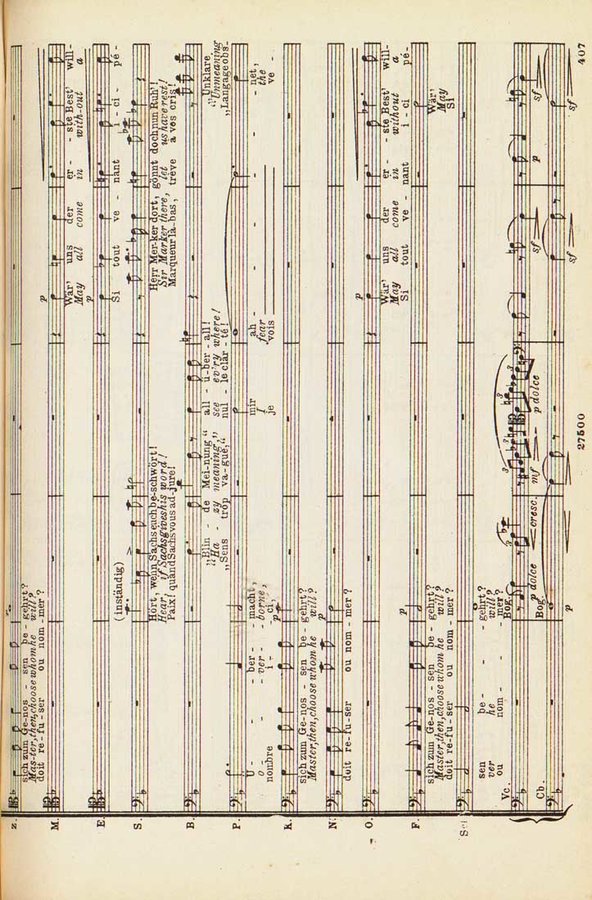 Z.
sich zum Ge-nos - sen be - gehrt?
Mas-ter, then, choose whom he will?
doit re-fu-ser ou nom - mer?
M.
p
Wär' uns der er - - ste Best' will-
May all come in with-out a
E.
p
Si tout ve - nant i - ci - pé-
S.
(inständig)
Hört, wenn Sachs euch be-schwört!
Hear, if Sachs gives his word!
Paix! quand Sachs vous ad-jure!
Herr Mer-ker dort, gönnt doch nun Ruh'!
Sir Marker there, let us have rest!
Marqueur là-bas, trève à vos cris!
B.
„Blin - de Mei-nung“ all - ü-ber-all!
„Ha - zy meaning,“ see ev'ry where!
„Sens trop va-gue,“ nul - le clar-té!
„Unklare
„Unmeaning
„Langage obs-
P.
Ü - - - ber - - macht, mir ah - - - - net,
o - - - ver - - borne, I fear the
nombre i - - ci, je vois ve -
K.
p
sich zum Ge-nos - sen be - gehrt?
Master, then, choose whom he will?
N.
doit re-fu-ser ou nom - mer?
O.
p
Wär' uns der er - - ste Best' will-
May all come in without a
Si tout ve - nant i - ci pé-
F.
p
sich zum Ge-nos - sen be - gehrt?
Master, then, choose whom he will?
doit re-fu-ser ou nom - mer?
Wär'
May
Si
sen be - gehrt?
ver he will?
ou nom - mer?
Vc.
Bog.
p dolce
cresc.
mf
p dolce
sf
p
sf
Cb.
Bog.
p
sf
sf
27500
407